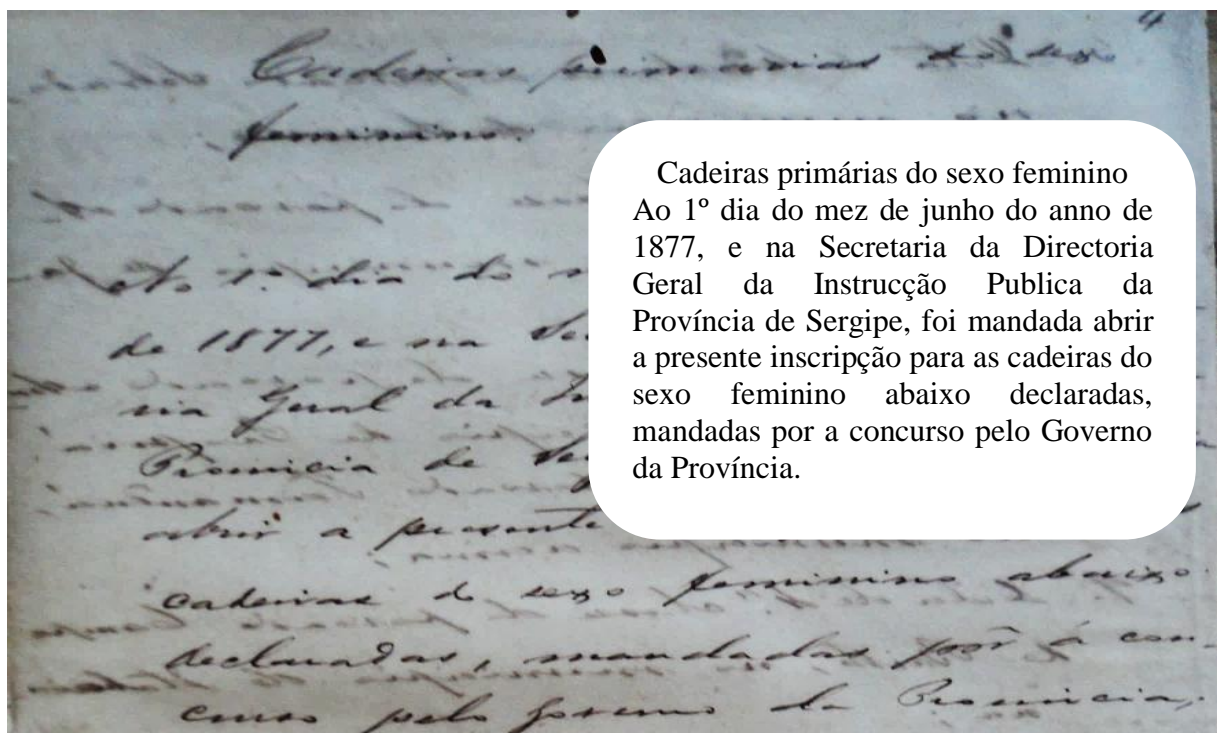 4
Cadeiras primarias do sexo
feminino.
Ao 1º dia do
de 1877, e na Sec
ria Geral da In
Provincia de Serg
abrir a presente
cadeiras do sexo feminino abaixo
declaradas, mandadas pôr á con-
curso pelo Governo da Provincia,
Cadeiras primárias do sexo feminino
Ao 1º dia do mez de junho do anno de
1877, e na Secretaria da Directoria
Geral da Instrucção Publica da
Província de Sergipe, foi mandada abrir
a presente inscripção para as cadeiras do
sexo feminino abaixo declaradas,
mandadas por a concurso pelo Governo
da Província.